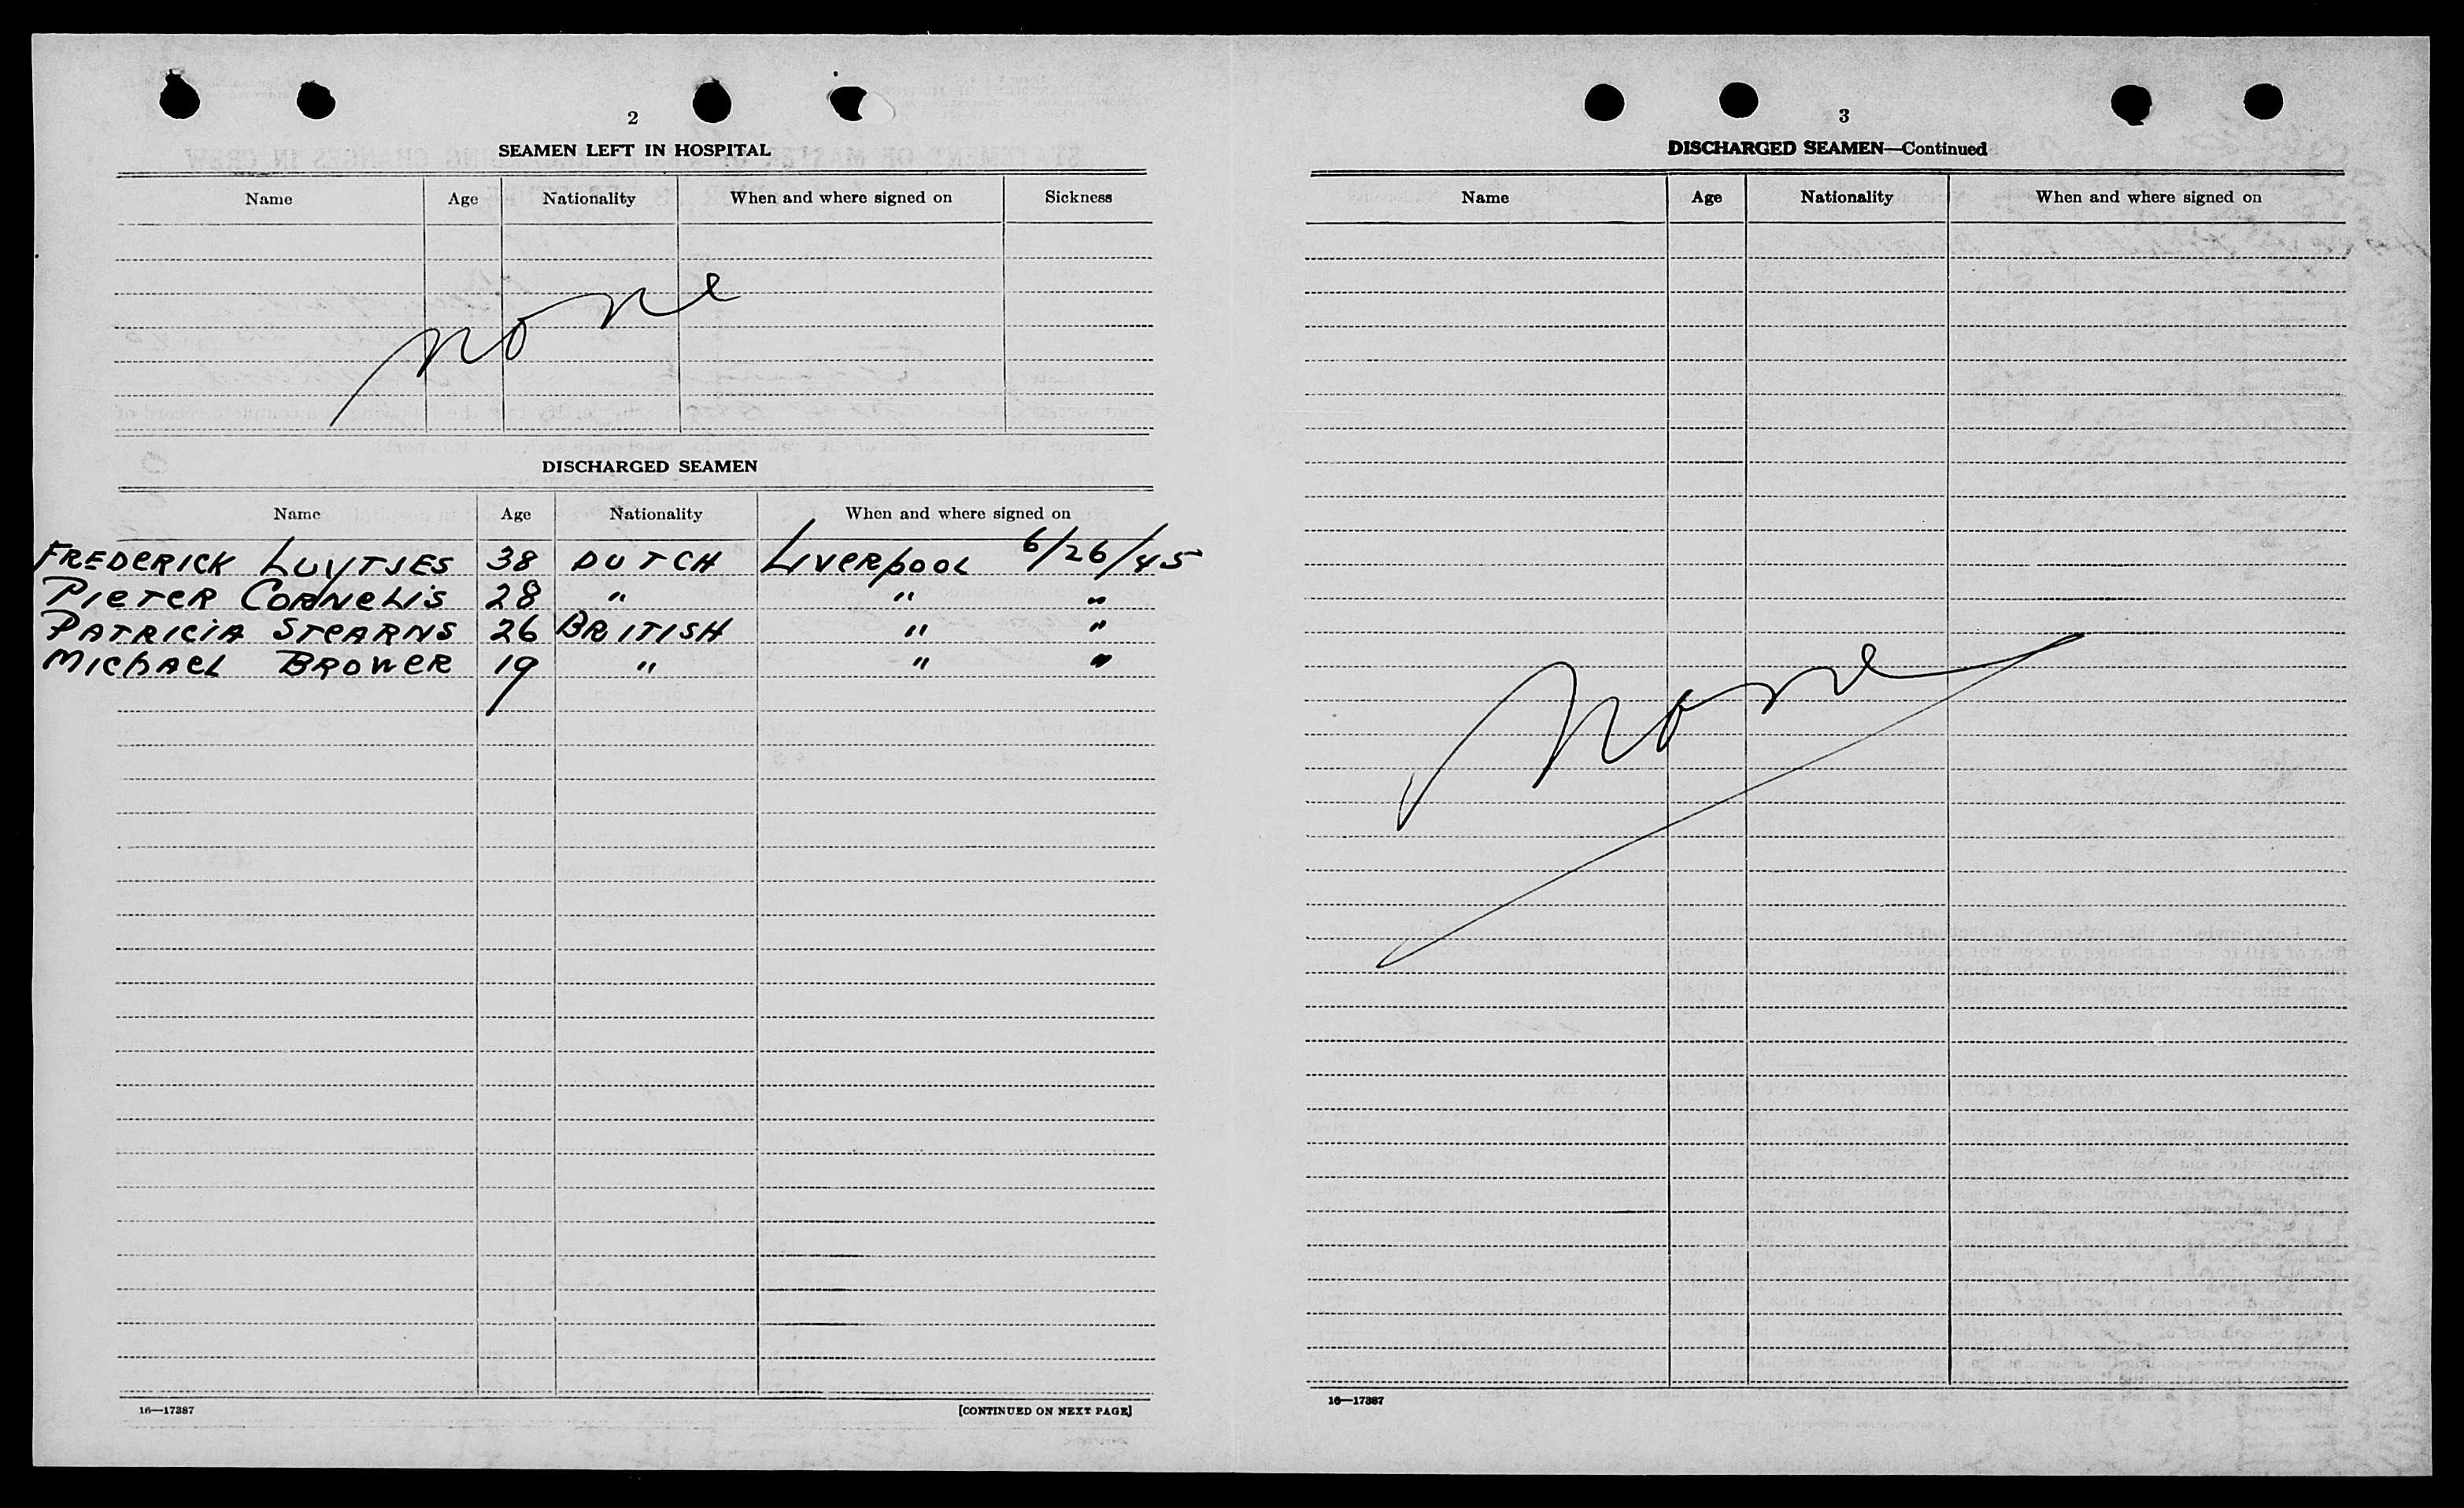 2
SEAMEN LEFT IN HOSPITAL
Name Age Nationality When and where signed on Sickness
None
DISCHARGED SEAMEN
Name Age Nationality When and where signed on
FREDERICK LUYTJES 38 DUTCH LIVERPOOL 6/26/45
PIETER CORNELIS 28 " " "
PATRICIA STEARNS 26 BRITISH " "
MICHAEL BROWER 19 " " "
16—17387 [CONTINUED ON NEXT PAGE]
3
DISCHARGED SEAMEN—Continued
Name Age Nationality When and where signed on
None
16—17387